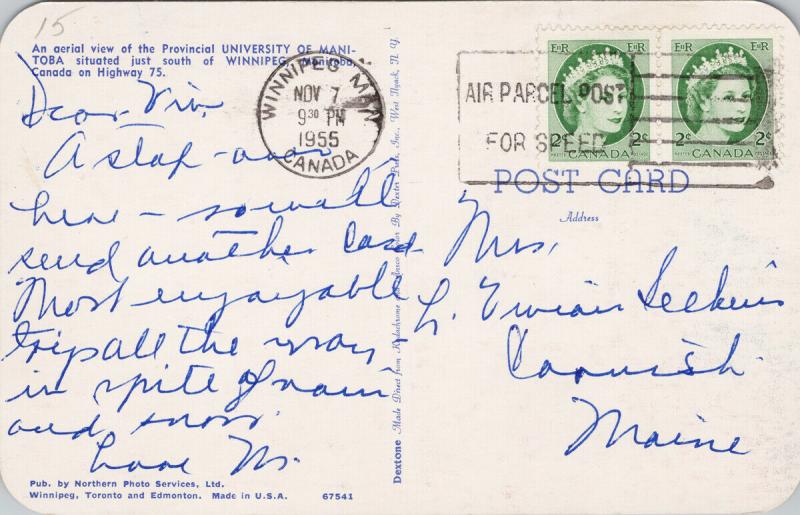 15
An aerial view of the Provincial UNIVERSITY OF MANI-
TOBA situated just south of WINNIPEG, Manitoba,
Canada on Highway 75.
Dear Viv,
A stop-over
here - so will
send another card
Most enjoyable
trip all the way
in spite of rain
and snow.
Love M.
Pub. by Northern Photo Services, Ltd.
Winnipeg, Toronto and Edmonton. Made in U.S.A. 67541
Dextone Made Direct from Kodachrome and Ansco Color By Dexter Press, Inc., West Nyack, N. Y.
WINNIPEG MAN.
NOV 7
9 30 PM
1955
CANADA
AIR PARCEL POST
FOR SPEED
EIIR EIIR
2¢ 2¢
POSTES CANADA POSTAGE
EIIR EIIR
2¢ 2¢
POSTES CANADA POSTAGE
POST CARD
Address
Mrs.
L. Vivian
Cornish
Maine